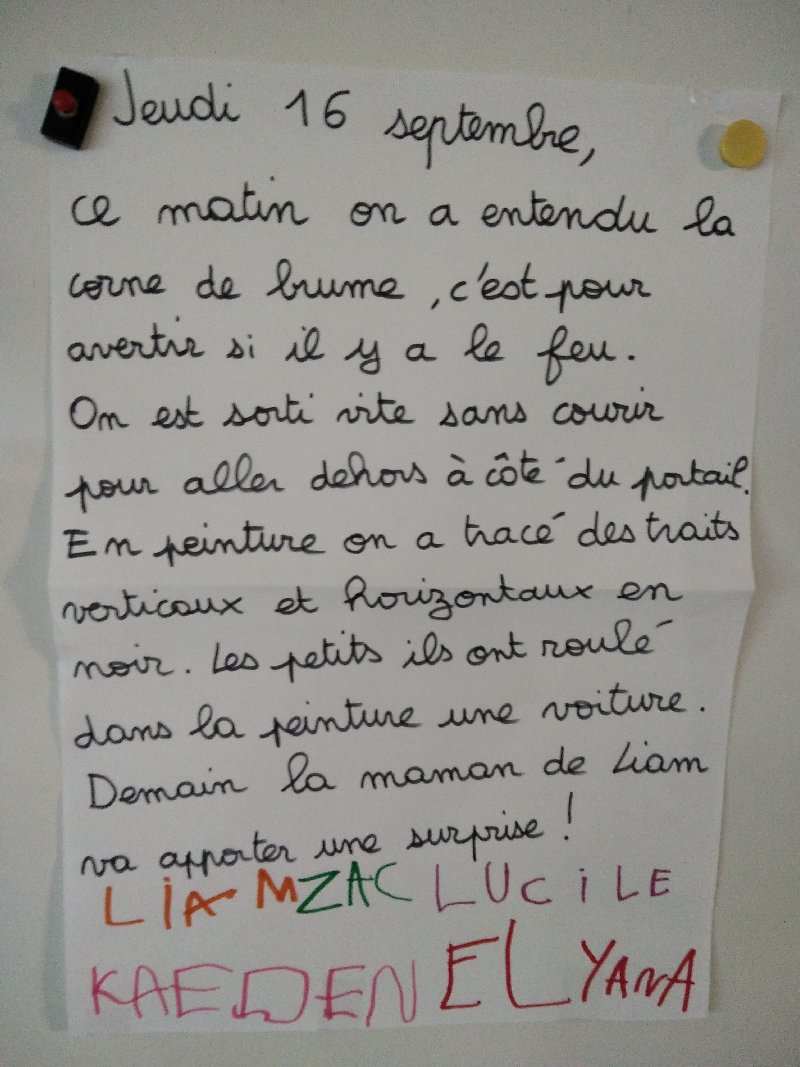 Jeudi 16 septembre,
ce matin on a entendu la
corne de brume, c'est pour
avertir si il y a le feu.
On est sorti vite sans courir
pour aller dehors à côté du portail.
En peinture on a tracé des traits
verticaux et horizontaux en
noir. Les petits ils ont roulé
dans la peinture une voiture.
Demain la maman de Liam
va apporter une surprise !
LiAM ZAC LUCiLE
KAEDEN ELYANA